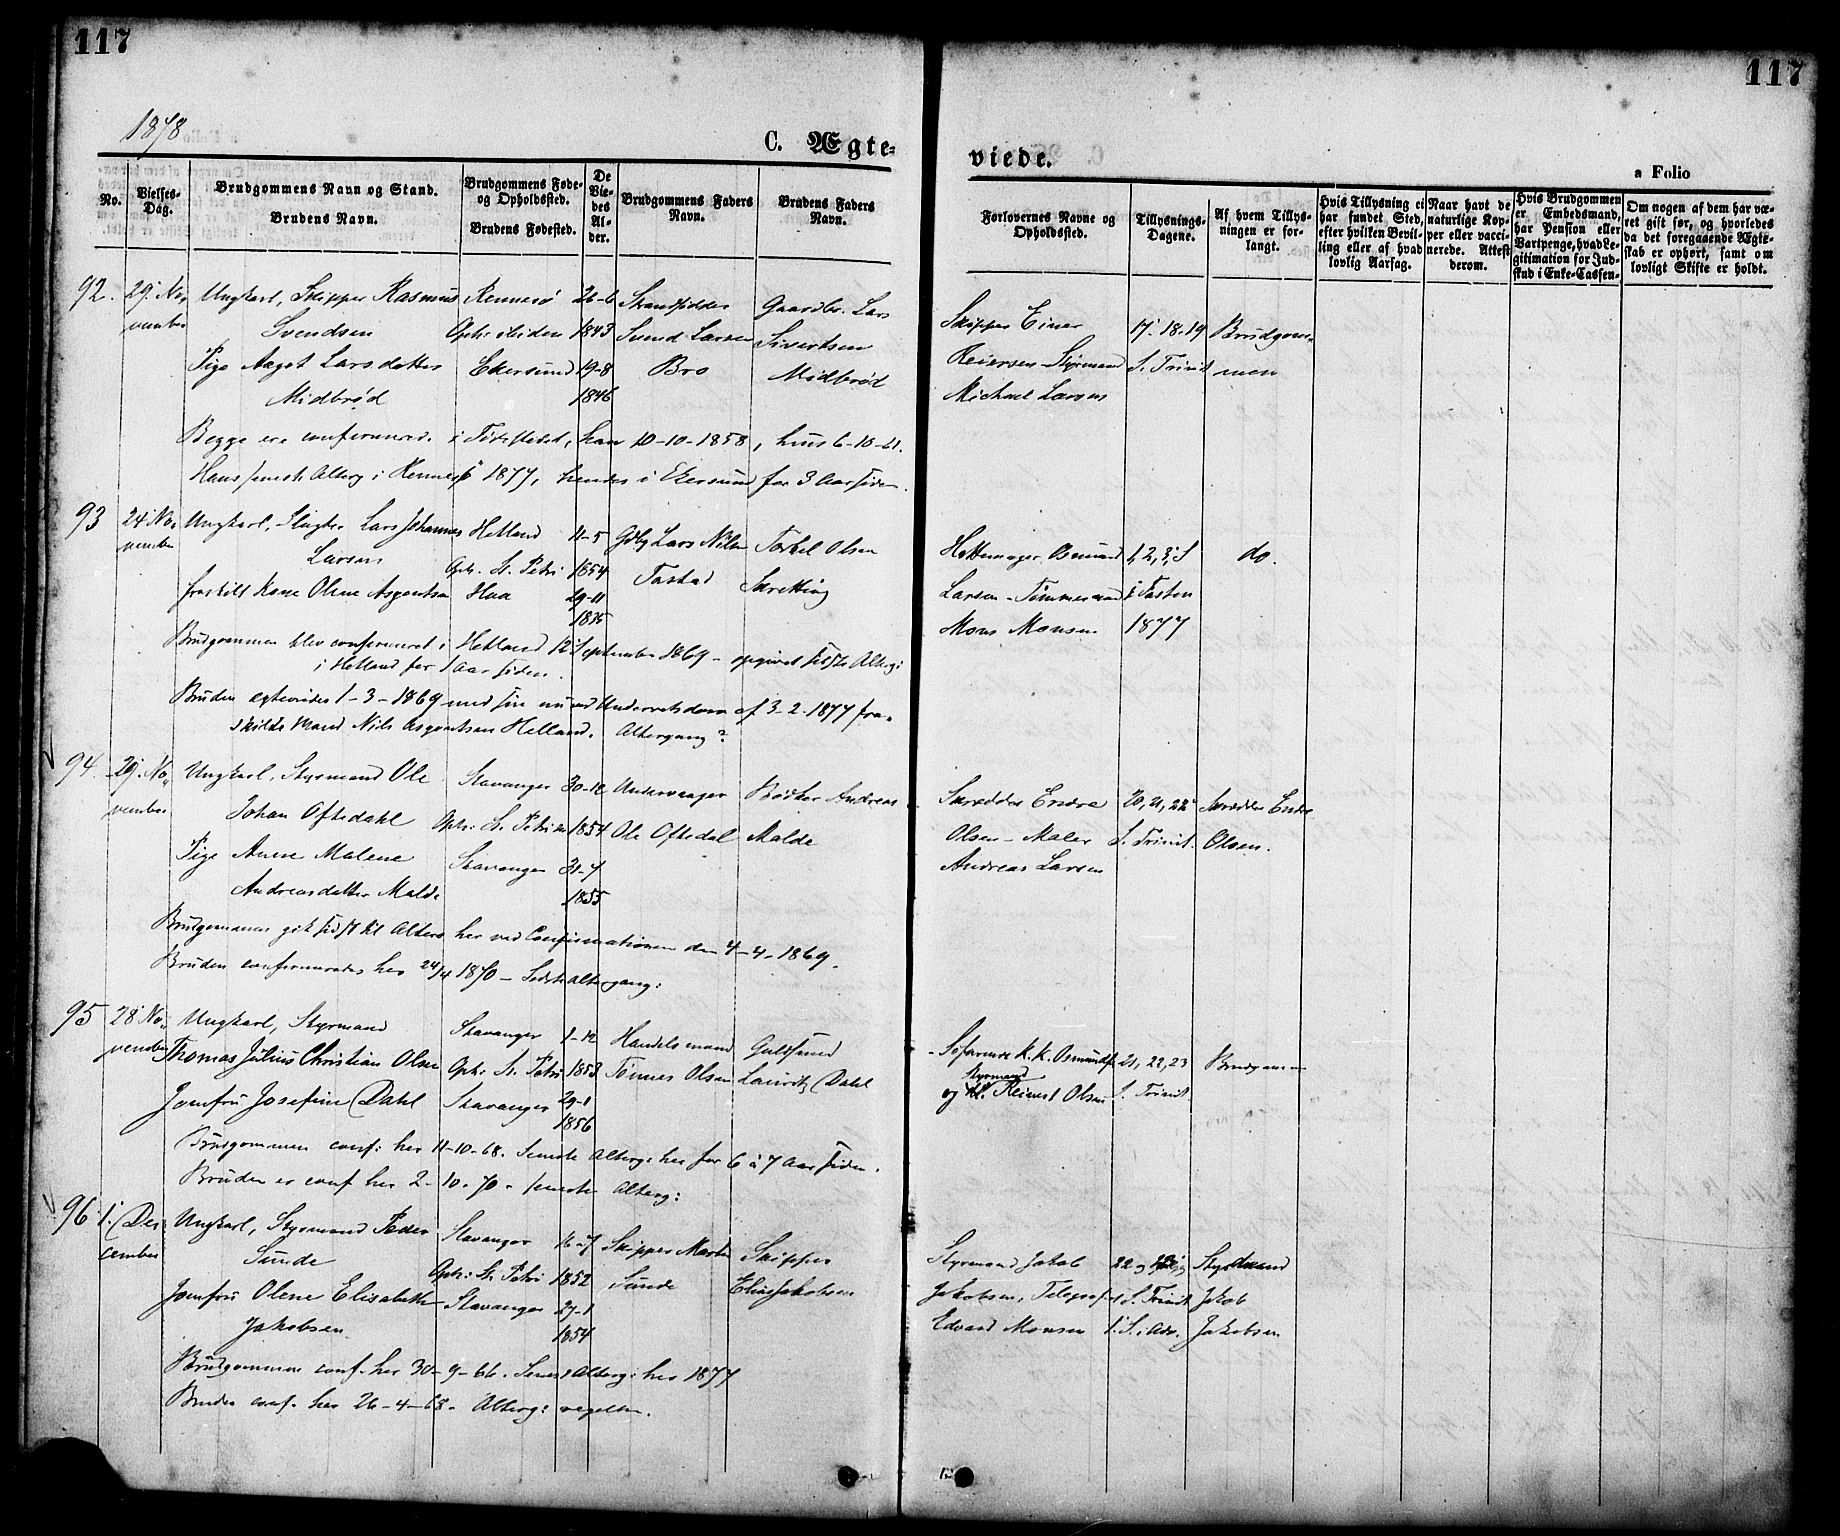 117
117
1878
C. Ægte-
viede.
a Folio
No.
Vielses-Dag.
Brudgommens Navn og Stand.
Brudens Navn.
Brudgommens Føde- og Opholdssted.
Brudens Fødested.
De Viedes Alder.
Brudgommens Faders Navn.
Brudens Faders Navn.
Forlovernes Navne og Opholdssted.
Tillysnings-Dagene.
Af hvem Tillysningen er forlangt.
Hvis Tillysning ei har fundet Sted, efter hvilken Bevilling eller af hvad lovlig Aarsag.
Naar havt de naturlige Kopper eller vaccinerede. Attest derom.
Hvis Brudgommen er Embedsmand, har Pension eller Vartpenge, hvad Legitimation for Indskud i Enke-Cassen.
Om nogen af dem har været gift før, og hvorledes da det foregaaende Ægteskab er ophørt, samt om lovligt Skifte er holdt.
92. 29. No- Ungkarl, Skipper Rasmus Rennesø 26-6 Strandsidder Gaardbr. Lars
vember Svendsen Oph: 1843 Svend Larsen Sivertsen
Pige Aaget Larsdatter Ekersund 19-8 Bro Midbrød
Midbrød 1846
Skipper Einar 17. 18. 19 Brudgom-
Reiersen Styrmand S. Trinit men
Michael Larsen
Begge ere confirmerede i Fødestedet, han 10-10-1858, hun 6-10-61.
Hans seneste Alterg i Rennesø 1877, hendes i Ekersund for 3 Aar siden.
93 24 No- Ungkarl, Lars Johannes Hetland 11-5 Gdbr Lars Nilsen Torkel Olsen
vember Larsen Oph. St. Petri 1854 Tastad Skretting
fraskilt Kone Olene Asgautsen Haa 29-11
1835
Hattemager Larsen - Tømmermand 1, 2, 3, S do.
Mons Monsen i Fasten 1877
Brudgommen blev confirmeret i Hetland 12 September 1869 - opgivet sidste Alterg:
i Hetland for 1 Aar siden.
Bruden egteviedes 1-3-1869 med sin nu ved Underretsdom af 3-2-1877 fra-
skilte Mand Nils Asgautsen Helland. Altergang?
94. 29. No- Ungkarl, Styrmand Ole Stavanger 30-12 Bødker Andreas
vember Johan Oftedahl Oph: St. Petri 1854 Ole Oftedal Malde
Pige Anne Malene Stavanger 31-7
Andreasdatter Malde 1855
Skrædder Endre 20, 21, 22 Skrædder Endre
Olsen - Maler S. Trinit. Olsen.
Andreas Larsen
Brudgommen gik sidst til Alters her ved Confirmationen den 4-4-1869.
Bruden confirmeredes her 24/4 1870 - Sidste altergang:
95 28 No- Ungkarl, Styrmand Stavanger 1-12 Handelsmand Guldsmed
vember Thomas Julius Christian Olsen Oph: St. Petri 1853 Tønnes Olsen Lauritz Dahl
Jomfru Josefine Dahl Stavanger 29-1
1856
K. K. Osmunds 21, 22, 23 Brudgommen
og Styrmand Reinert Olsen S. Trinit
Brudgommen conf: her 11-10-68. Seneste Alterg: her for 6 à 7 Aar siden.
Bruden er conf her 2-10-70. seneste Alterg:
96 1. De- Ungkarl, Styrmand Peder Stavanger 16-7 Skipper Martin Skipper
cember Sunde Oph: St. Petri 1852 Sunde Elias Jakobsen
Jomfru Olene Elisabeth Stavanger 27-1
Jakobsen 1854
Styrmand Jakob 22 og Styrmand
Jakobsen, Telegraf S. Trinit Jakob
Edvard Monsen 1. S. i Adv. Jakobsen
Brudgommen conf. her 30-9-66. Senest Alterg: her 1877
Bruden conf. her 26-4-68. Alterg: